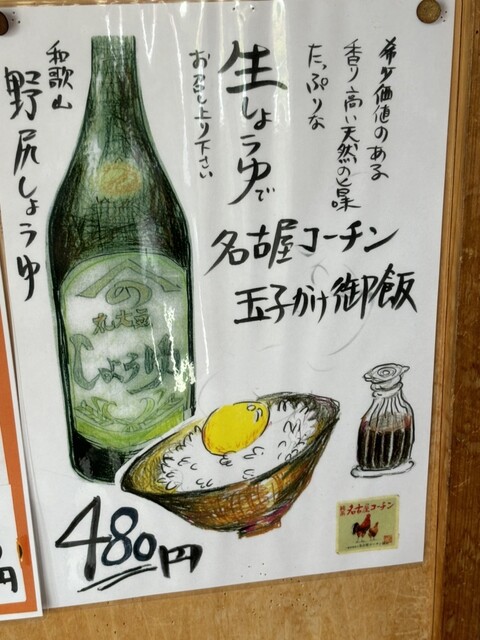 希少価値のある
香り高い天然の旨味
たっぷりな
生しょうゆで
お召し上り下さい
名古屋コーチン
玉子かけ御飯
和歌山
野尻しょうゆ
の
丸大豆
しょうゆ
480円
名古屋コーチン
円